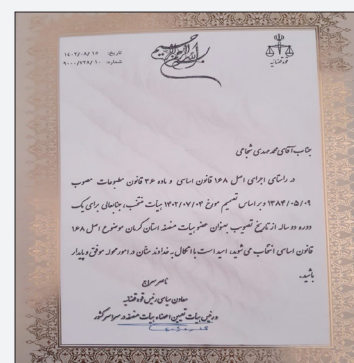 بسم الله الرحمن الرحیم
قوه قضائیه
تاریخ:
شماره: ۹۰۰۰/۷۲۸/۱۰
جناب آقای محمد مهدی شجاعی
در راستای اجرای اصل ۱۶۸ قانون اساسی و ماده ۳۶ قانون مطبوعات مصوب
۱۳۸۴/۰۵/۰۹ و بر اساس تصمیم مورخ ۱۴۰۲/۰۷/۰۴ هیات منتخب، جنابعالی برای یک
دوره دو ساله از تاریخ تصویب بعنوان عضو هیات منصفه استان کرمان موضوع اصل ۱۶۸
قانون اساسی انتخاب می شوید، امید است با اتکال به خداوند منان در امور محوله موفق و پایدار
باشید.
ناصر سراج
معاون سیاسی رئیس قوه قضائیه
و رئیس هیات تعیین اعضاء هیات منصفه در سراسر کشور